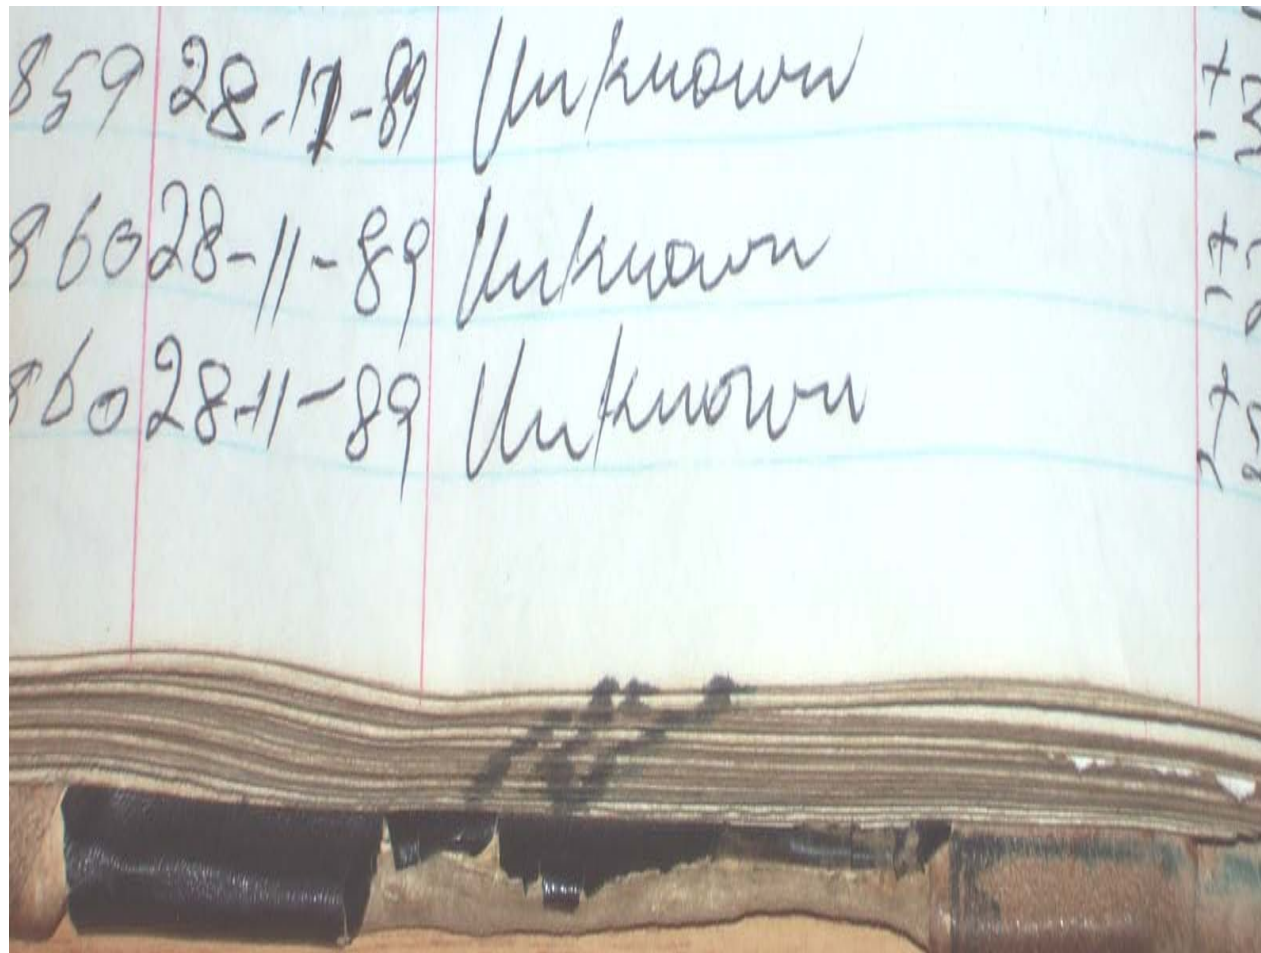 859 28-11-89 Unknown
860 28-11-89 Unknown
860 28-11-89 Unknown